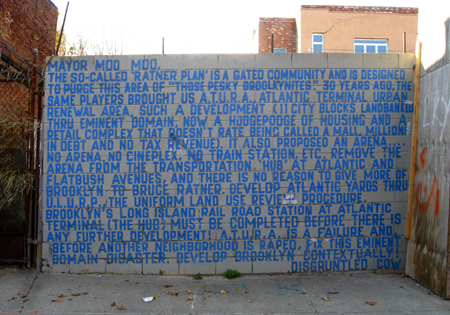 MAYOR MOO, MOO,
THE SO-CALLED 'RATNER PLAN' IS A GATED COMMUNITY AND IS DESIGNED
TO PURGE THIS AREA OF "THOSE PESKY BROOKLYNITES". 30 YEARS AGO, THE
SAME PLAYERS BROUGHT US A.T.U.R.A., ATLANTIC TERMINAL URBAN
RENEWAL AREA. SUCH A DEVELOPMENT (CITY BLOCKS LANDGRABED
VIA EMINENT DOMAIN, NOW A HODGEPODGE OF HOUSING AND A
RETAIL COMPLEX THAT DOESN'T RATE BEING CALLED A MALL, MILLIONS
IN DEBT AND NO TAX REVENUE). IT ALSO PROPOSED AN ARENA...
NO ARENA, NO CINEPLEX, NO TRAIN STATION, ETC. REMOVE THE
ARENA FROM THE TRANSPORTATION 'HUB' AT ATLANTIC AND
FLATBUSH AVENUES AND THERE IS NO REASON TO GIVE MORE OF
BROOKLYN TO BRUCE RATNER. DEVELOP ATLANTIC YARDS THRU
U.L.U.R.P., THE UNIFORM LAND USE REVIEW PROCEDURE.
BROOKLYN'S LONG ISLAND RAIL ROAD STATION AT ATLANTIC
TERMINAL (THE HUB) MUST BE COMPLETED BEFORE THERE IS
ANY FURTHER DEVELOPMENT! A.T.U.R.A. IS A FAILURE AND
BEFORE ANOTHER NEIGHBORHOOD IS RAPED, STOP THIS EMINENT
DOMAIN DISASTER. DEVELOP BROOKLYN CONTEXTUALLY.
DISGRUNTLED COW